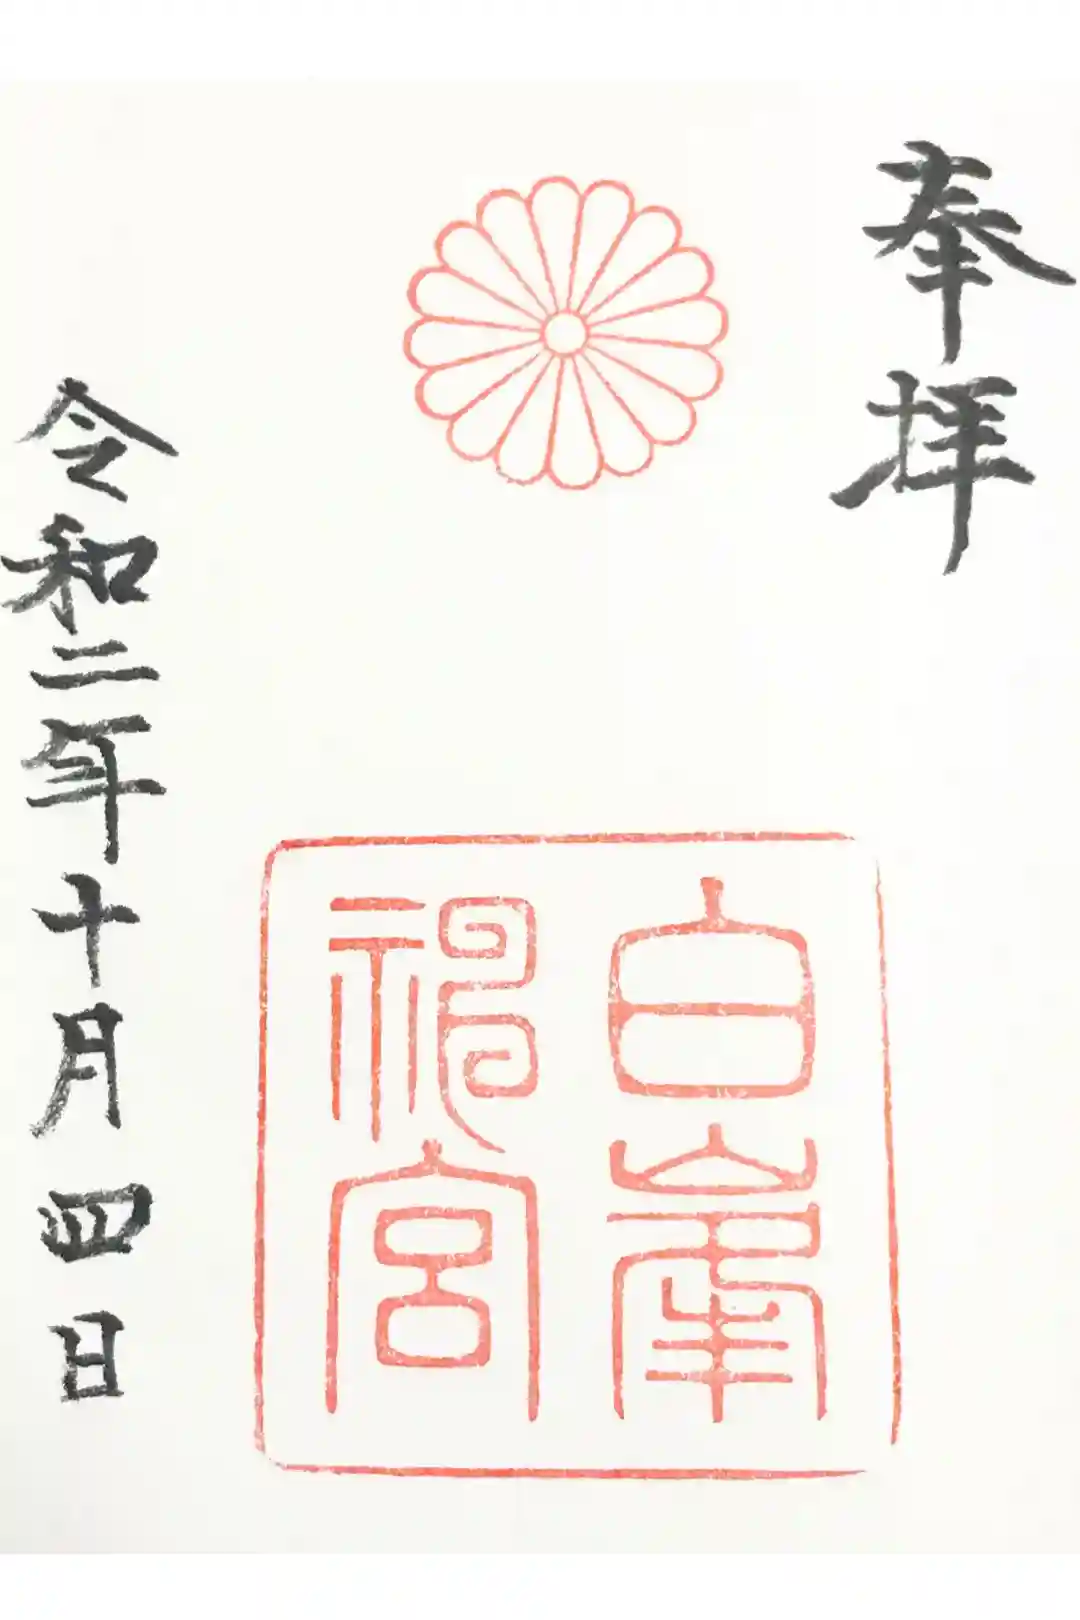 奉拝
白峯
神宮
令和二年十月四日